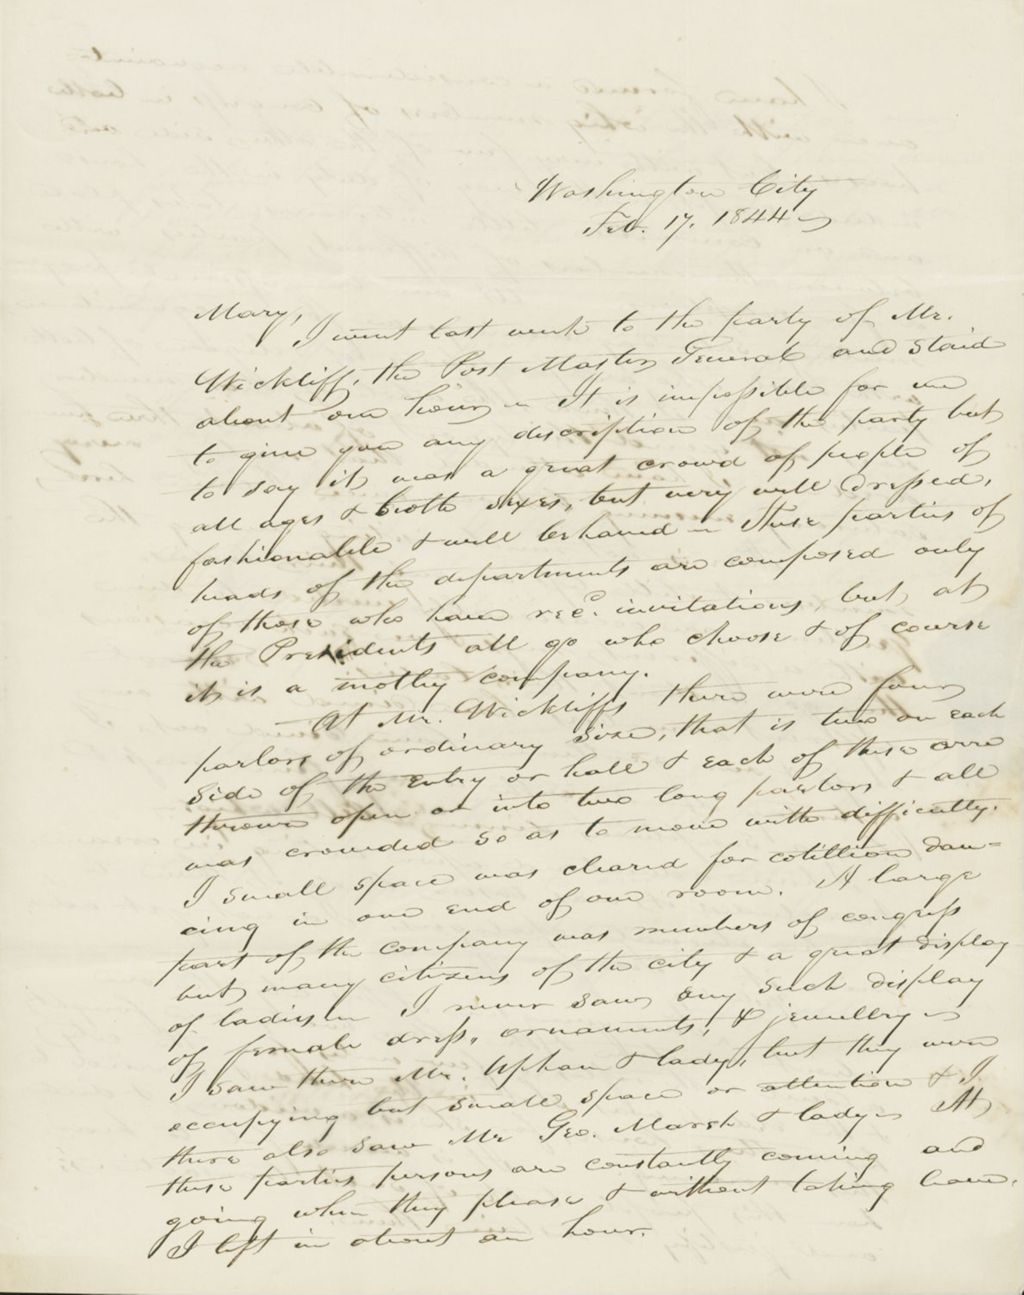 Washington City
Feb. 17. 1844
Mary,
I went last week to the party of Mr.
Wickliff, the Post Master General and staid
about one hour – It is impossible for me
to give you any discription of the party but
to say it was a great crowd of people of
all ages & both sexes, but very well dressed,
fashionable & well behaved – These parties of
heads of the departments are composed only
of those who have recd. invitations, but, at
the Presidents all go who choose & of course
it is a motley company.
– At Mr. Wickliffs there were four
parlors of ordinary size, that is two on each
side of the entry or hall & each of these were
thrown open or into two long parlors & all
was crowded so as to move with difficulty.
A small space was cleared for cotillion dan=
cing in one end of one room. A large
part of the company was members of congress
but many citizens of the city & a great display
of ladies – I never saw any such display
of female dress, ornaments, & jewellery –
I saw there Mr. Upham & lady, but they were
occupying but small space or attention & I
there also saw Mr Geo. Marsh & lady – At
these parties persons are constantly coming and
going when they please & without taking leave.
I left in about an hour.